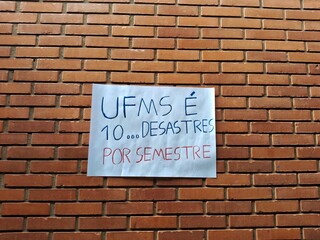 UFMS É
10... DESASTRES
POR SEMESTRE